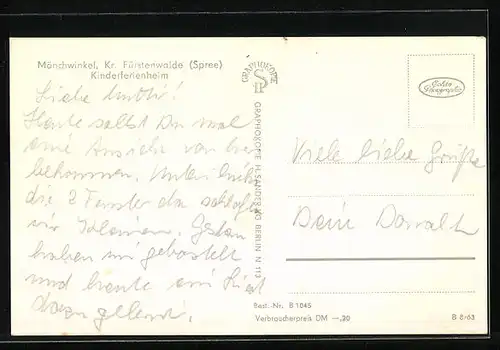 Mönchwinkel, Kr. Fürstenwalde (Spree)
Kinderferienheim
Liebe Mutti!
Heute sollst Du mal
eine Ansicht von hier
bekommen. Unten links
die 2 Fenster da schlafen
wir drinnen. Gestern
haben wir gebastelt
und heute ein Lied
dazu gelernt.
GRAPHOKOPIE
GRAPHOKOPIE H. SANDER KG BERLIN N 113
Echte
Photographie
Viele liebe Grüße
Dein
Best.-Nr. B 1045
Verbraucherpreis DM —,20
B 8/63